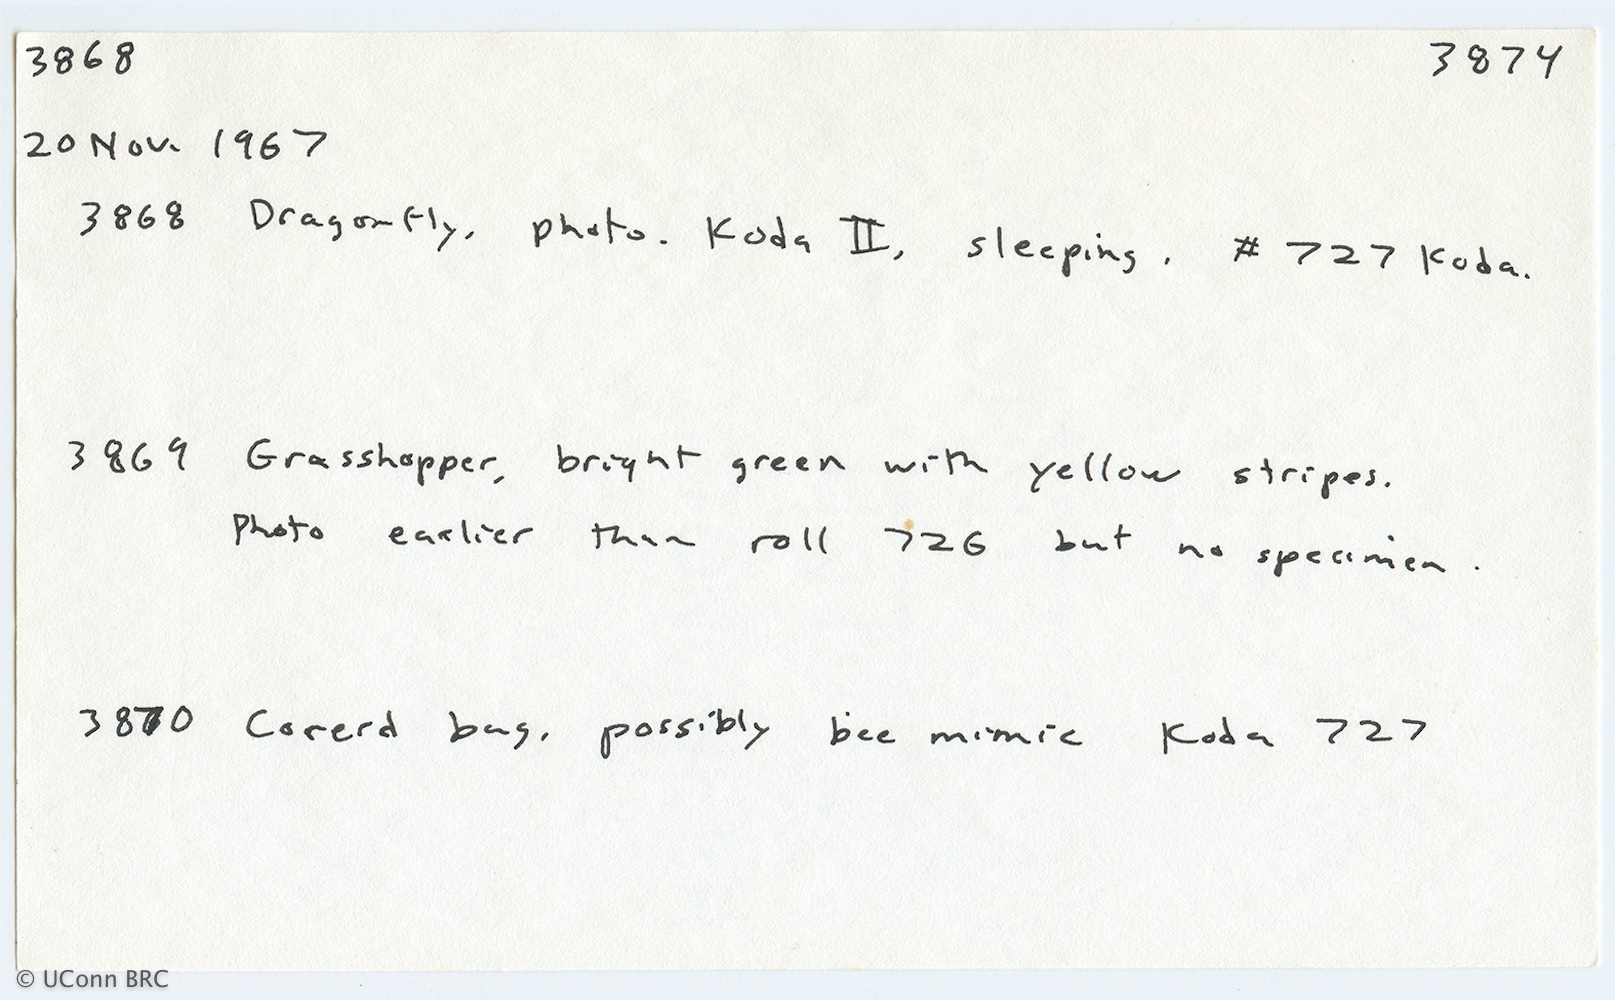 3868 3874
20 Nov. 1967
3868 Dragonfly, photo. Koda II, sleeping. # 727 Koda.
3869 Grasshopper, bright green with yellow stripes.
Photo earlier than roll 726 but no specimen.
3870 Corerd bug, possibly bee mimic Koda 727
© UConn BRC